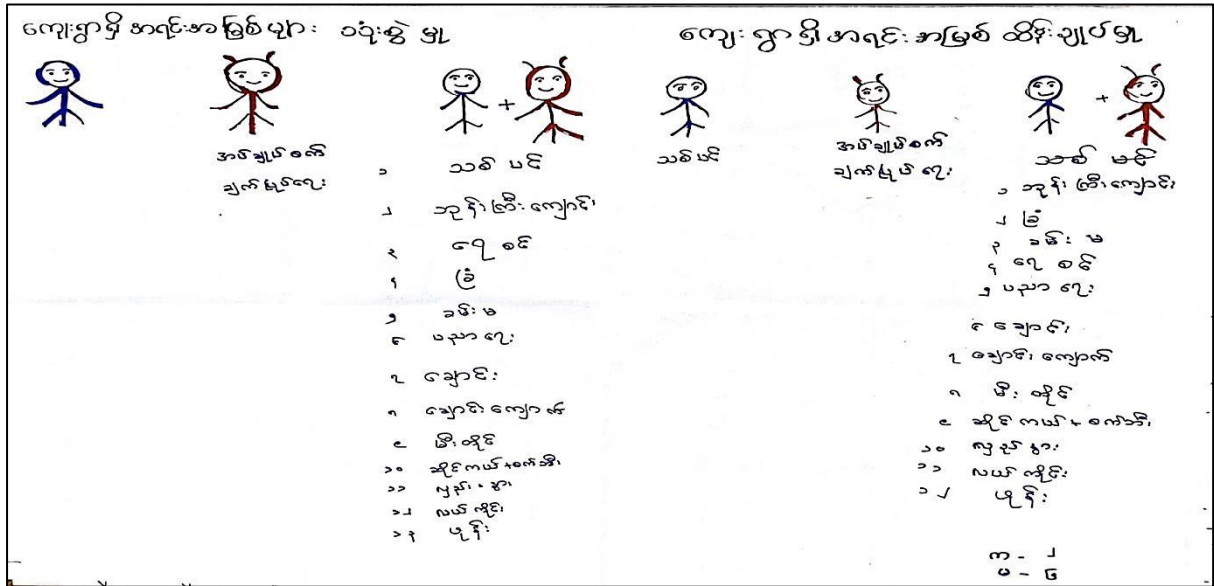 ကျေးရွာရှိ အရင်းအမြစ်များ သုံးစွဲမှု
အပ်ချုပ်စက်
ချက်ပြုပ်ရေး
၁ သစ်ပင်
၂ ဘုန်းကြီးကျောင်း
၃ ရေစင်
၄ ခြံ
၅ ခမ်းမ
၆ ပညာရေး
၇ ချောင်း
၈ ချောင်းကျောက်
၉ မီးတိုင်
၁၀ ဆိုင်ကယ်+စက်ဘီး
၁၁ လှည်း + နွား
၁၂ လယ်ကွိုင်း
၁၃ ဖုန်း
ကျေးရွာရှိ အရင်းအမြစ် ထိန်းချုပ်မှု
သစ်ပင်
အပ်ချုပ်စက်
ချက်ပြုပ်ရေး
သစ်ပင်
၁ ဘုန်းကြီးကျောင်း
၂ ခြံ
၃ ခမ်းမ
၄ ရေစင်
၅ ပညာရေး
၆ ချောင်း
၇ ချောင်းကျောက်
၈ မီးတိုင်
၉ ဆိုင်ကယ်+စက်ဘီး
၁၀ လှည်းနွား
၁၁ လယ်ကွိုင်း
၁၂ ဖုန်း
က - ၂
မ - ၆